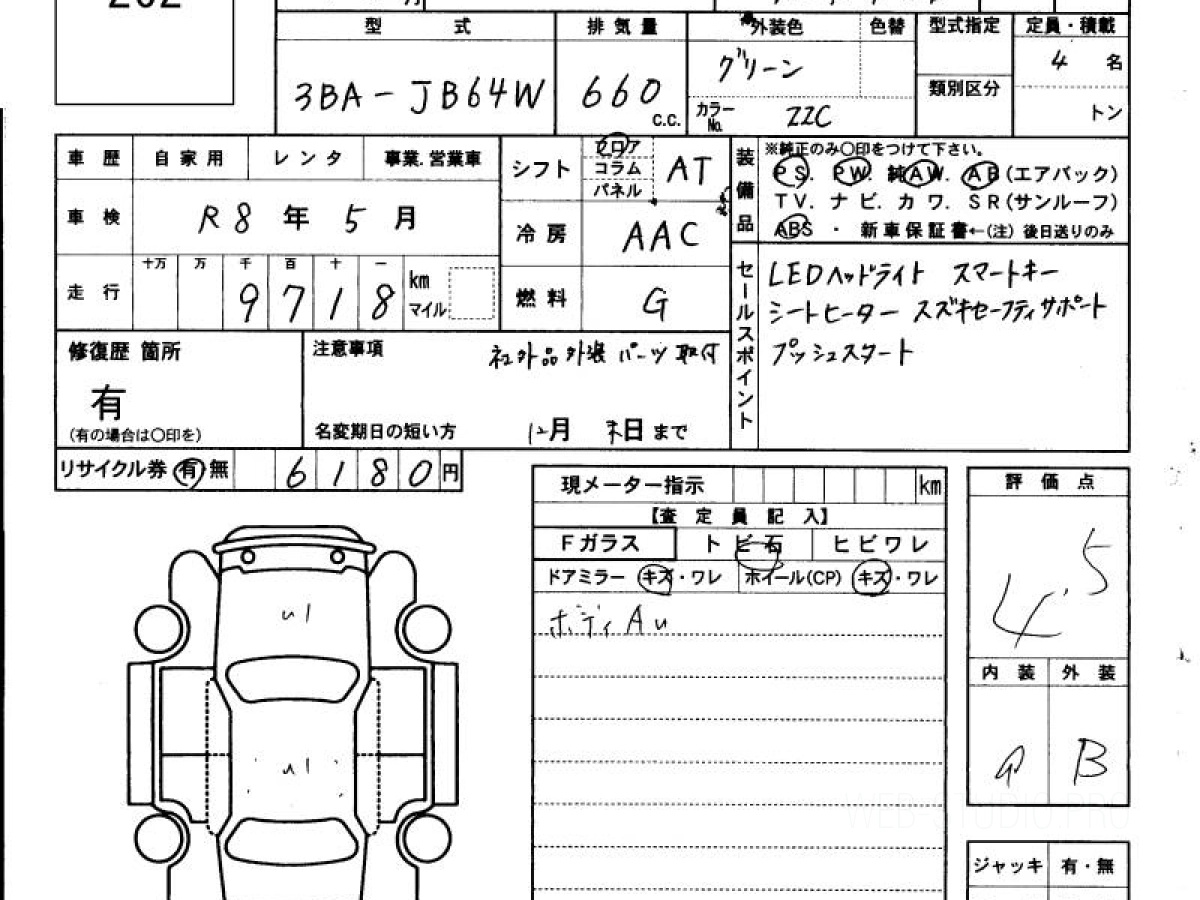 型 式
排 気 量
外装色
色替
型式指定
定員・積載
3BA-JB64W
660
C.C.
グリーン
カラーNo.
ZZC
類別区分
4 名
トン
車 歴
自 家 用
レ ン タ
事業.営業車
車 検
R8 年 5 月
走 行
十万 万 千 百 十 一
9718
km
マイル
シフト
フロア
コラム
パネル
AT
冷 房
AAC
燃 料
G
装備品
※純正のみ○印をつけて下さい。
PS. PW. 純AW. AB(エアバック)
TV. ナビ. カワ. SR(サンルーフ)
ABS ・ 新車保証書←(注) 後日送りのみ
セールスポイント
LEDヘッドライト スマートキー
シートヒーター スズキセーフティサポート
プッシュスタート
修復歴 箇所
有
(有の場合は○印を)
注意事項
社外品外装パーツ取付
名変期日の短い方
12月 末日 まで
リサイクル券 有・無
6180円
現メーター指示
km
【査 定 員 記 入】
Fガラス
トビ石
ヒビワレ
ドアミラー キズ・ワレ
ホイール(CP) キズ・ワレ
ボディ Au
評 価 点
4.5
内 装
外 装
a
B
u1
u1
ジャッキ
有・無
WEB-STUDIO.PRO